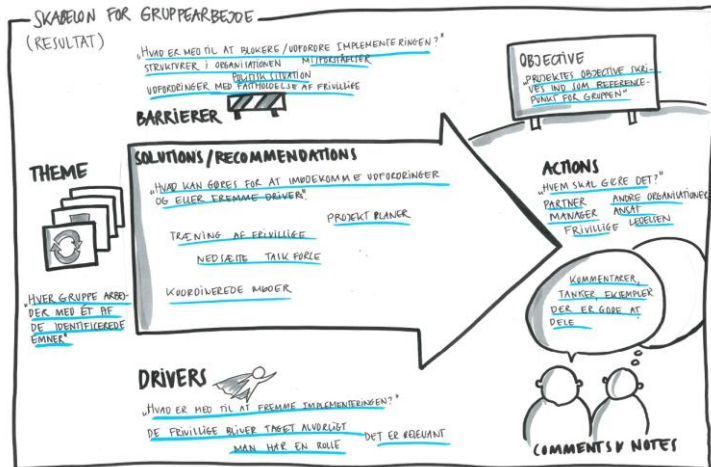 SKABELON FOR GRUPPEARBEJDE
(RESULTAT)
"HVAD ER MED TIL AT BLOKERE/UDFORDRE IMPLEMENTERINGEN?"
STRUKTURER I ORGANISATIONEN MISFORSTÅELSER
POLITISK SITUATION
UDFORDRINGER MED FASTHOLDELSE AF FRIVILLIGE
BARRIERER
OBJECTIVE
"PROJEKTES OBJECTIVE SKRI-
VES IND SOM REFERENCE-
PUNKT FOR GRUPPEN"
THEME
"HVER GRUPPE ARBEJ-
DER MED ÉT AF
DE IDENTIFICEREDE
EMNER"
SOLUTIONS/RECOMMENDATIONS
"HVAD KAN GØRES FOR AT IMØDEKOMME UDFORDRINGER
OG ELLER FREMME DRIVER?"
PROJEKT PLANER
TRÆNING AF FRIVILLIGE
NEDSÆTTE TASK FORCE
KOORDINEREDE MØDER
ACTIONS
"HVEM SKAL GØRE DET?"
PARTNER ANDRE ORGANISATIONER
MANAGER ANSAT
FRIVILLIGE LEDELSEN
KOMMENTARER,
TANKER, EKSEMPLER
DER ER GODE AT
DELE
COMMENTS & NOTES
DRIVERS
"HVAD ER MED TIL AT FREMME IMPLEMENTERINGEN?"
DE FRIVILLIGE BLIVER TAGET ALVORLIGT
DET ER RELEVANT
MAN HAR EN ROLLE